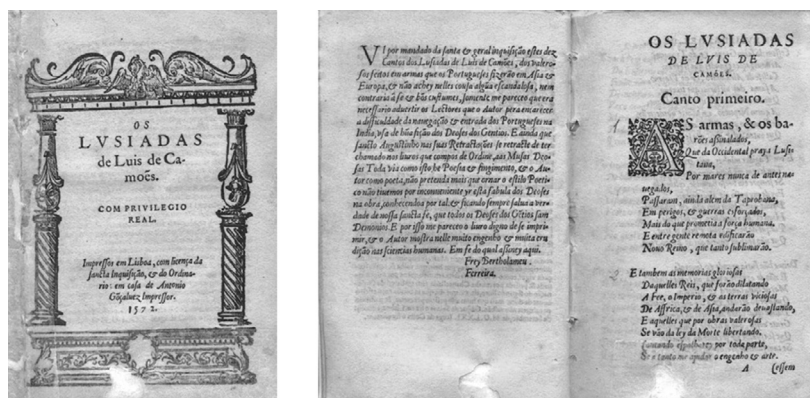 OS
LVSIADAS
de Luis de Ca-
moẽs.
COM PRIVILEGIO
REAL.
Impressos em Lisboa, com licença da
sancta Inquisição, & do Ordina-
rio: em casa de Antonio
Gõçaluez Impressor.
1572.
VI por mandado da santa & geral inquisição estes dez
Cantos dos Lusiadas de Luis de Camões, dos valero-
sos feitos em armas que os Portugueses fizerão em Asia &
Europa, & não achey nelles cousa algũa escandalosa, nem
contraria â fe & bõs custumes, somente me pareceo que era
necessario aduertir os Lectores que o Autor pera encarecer
a difficuldade da nauegação & entrada dos Portugueses na
India, vsa de hũa fição dos Deoses dos Gentios. E ainda que
sancto Augustinho nas suas Retractações se retracte de ter
chamado nos liuros que compos de Ordine, aas Musas Deo-
sas. Toda via como isto he Poesia & fingimento, & o Au-
tor como poeta, não pretenda mais que ornar o estilo Poeti-
co não tiuemos por inconueniente yr esta fabula dos Deoses
na obra, conhecendoa por tal, & ficando sempre salua a ver-
dade de nossa sancta fe, que todos os Deoses dos Gẽtios sam
Demonios. E por isso me pareceo o liuro digno de se impri-
mir, & o Autor mostra nelle muito engenho & muita eru-
dição nas sciencias humanas. Em fe do qual assiney aqui.
Frey Bertholameu
Ferreira.
OS LVSIADAS
DE LVIS DE
CAMÕES.
Canto primeiro.
1
AS armas, & os ba-
rões assinalados,
Que da Occidental praya Lusi-
tana,
Por mares nunca de antes na-
uegados,
Passaram, ainda alem da Taprobana,
Em perigos, & guerras esforçados,
Mais do que prometia força humana.
E entre gente remota edificarão
Nouo Reino, que tanto sublimarão.
E tambem as memorias gloriosas
Daquelles Reis, que forão dilatando
A Fee, o Imperio, & as terras viciosas
De Affrica, & de Asia, andarão deuastando,
E aquelles que por obras valerosas
Se vão da ley da Morte libertando.
Cantando espalharey por toda parte,
Se a tanto me ajudar o engenho & arte.
A Cessem